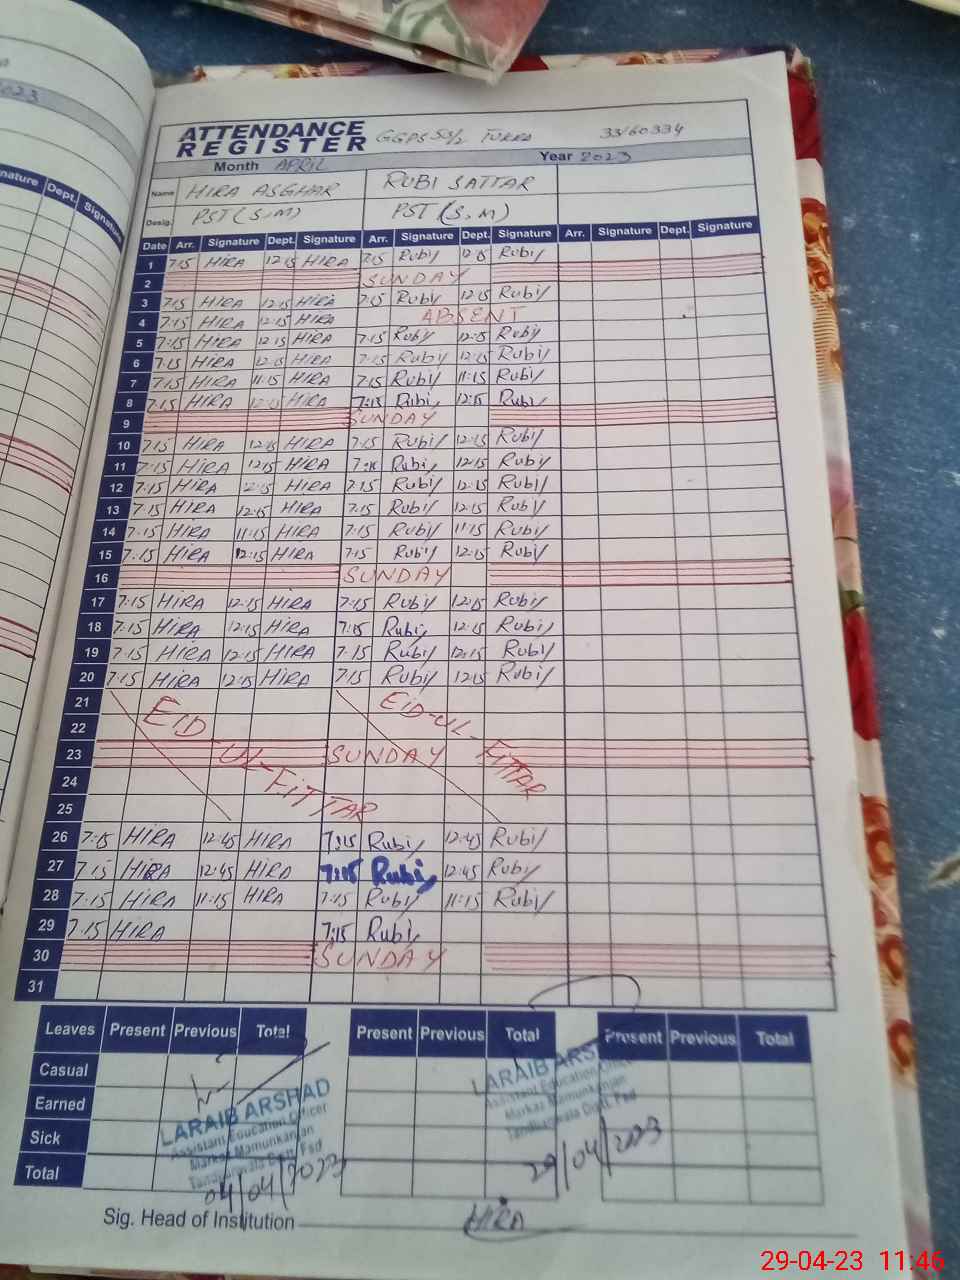 ATTENDANCE
REGISTER GGPS 53/2 TUKRA 33160334
Month APRIL Year 2023
Name HIRA ASGHAR RUBI SATTAR
Desig. PST (S,M) PST (S,M)
Date Arr. Signature Dept. Signature Arr. Signature Dept. Signature Arr. Signature Dept. Signature
1 7:15 HIRA 12:15 HIRA 7:15 Rubiy 12:15 Rubiy
2 SUNDAY
3 7:15 HIRA 12:15 HIRA 7:15 Rubiy 12:15 Rubiy
4 7:15 HIRA 12:15 HIRA ABSENT
5 7:15 HIRA 12:15 HIRA 7:15 Rubiy 12:15 Rubiy
6 7:15 HIRA 12:15 HIRA 7:15 Rubiy 12:15 Rubiy
7 7:15 HIRA 11:15 HIRA 7:15 Rubiy 11:15 Rubiy
8 7:15 HIRA 12:15 HIRA 7:15 Rubiy 12:15 Rubiy
9 SUNDAY
10 7:15 HIRA 12:15 HIRA 7:15 Rubiy 12:15 Rubiy
11 7:15 HIRA 12:15 HIRA 7:15 Rubiy 12:15 Rubiy
12 7:15 HIRA 12:15 HIRA 7:15 Rubiy 12:15 Rubiy
13 7:15 HIRA 12:15 HIRA 7:15 Rubiy 12:15 Rubiy
14 7:15 HIRA 11:15 HIRA 7:15 Rubiy 11:15 Rubiy
15 7:15 HIRA 12:15 HIRA 7:15 Rubiy 12:15 Rubiy
16 SUNDAY
17 7:15 HIRA 12:15 HIRA 7:15 Rubiy 12:15 Rubiy
18 7:15 HIRA 12:15 HIRA 7:15 Rubiy 12:15 Rubiy
19 7:15 HIRA 12:15 HIRA 7:15 Rubiy 12:15 Rubiy
20 7:15 HIRA 12:15 HIRA 7:15 Rubiy 12:15 Rubiy
21 EID-UL-FITTAR EID-UL-FITTAR
22
23 SUNDAY
24
25
26 7:15 HIRA 12:45 HIRA 7:15 Rubiy 12:45 Rubiy
27 7:15 HIRA 12:45 HIRA 7:15 Rubiy 12:45 Rubiy
28 7:15 HIRA 11:15 HIRA 7:15 Rubiy 11:15 Rubiy
29 7:15 HIRA 7:15 Rubiy
30 SUNDAY
31
Leaves Present Previous Total Present Previous Total Present Previous Total
Casual
Earned
Sick
Total
LARAIB ARSHAD
Assistant Education Officer
Markaz Mamunkanjan
Tandlianwala Distt. Fsd
04/04/2023
LARAIB ARS
Assistant Education Officer
Markaz Mamunkanjan
Tandlianwala Distt. Fsd
29/04/2023
Sig. Head of Institution HIRA
29-04-23 11:46